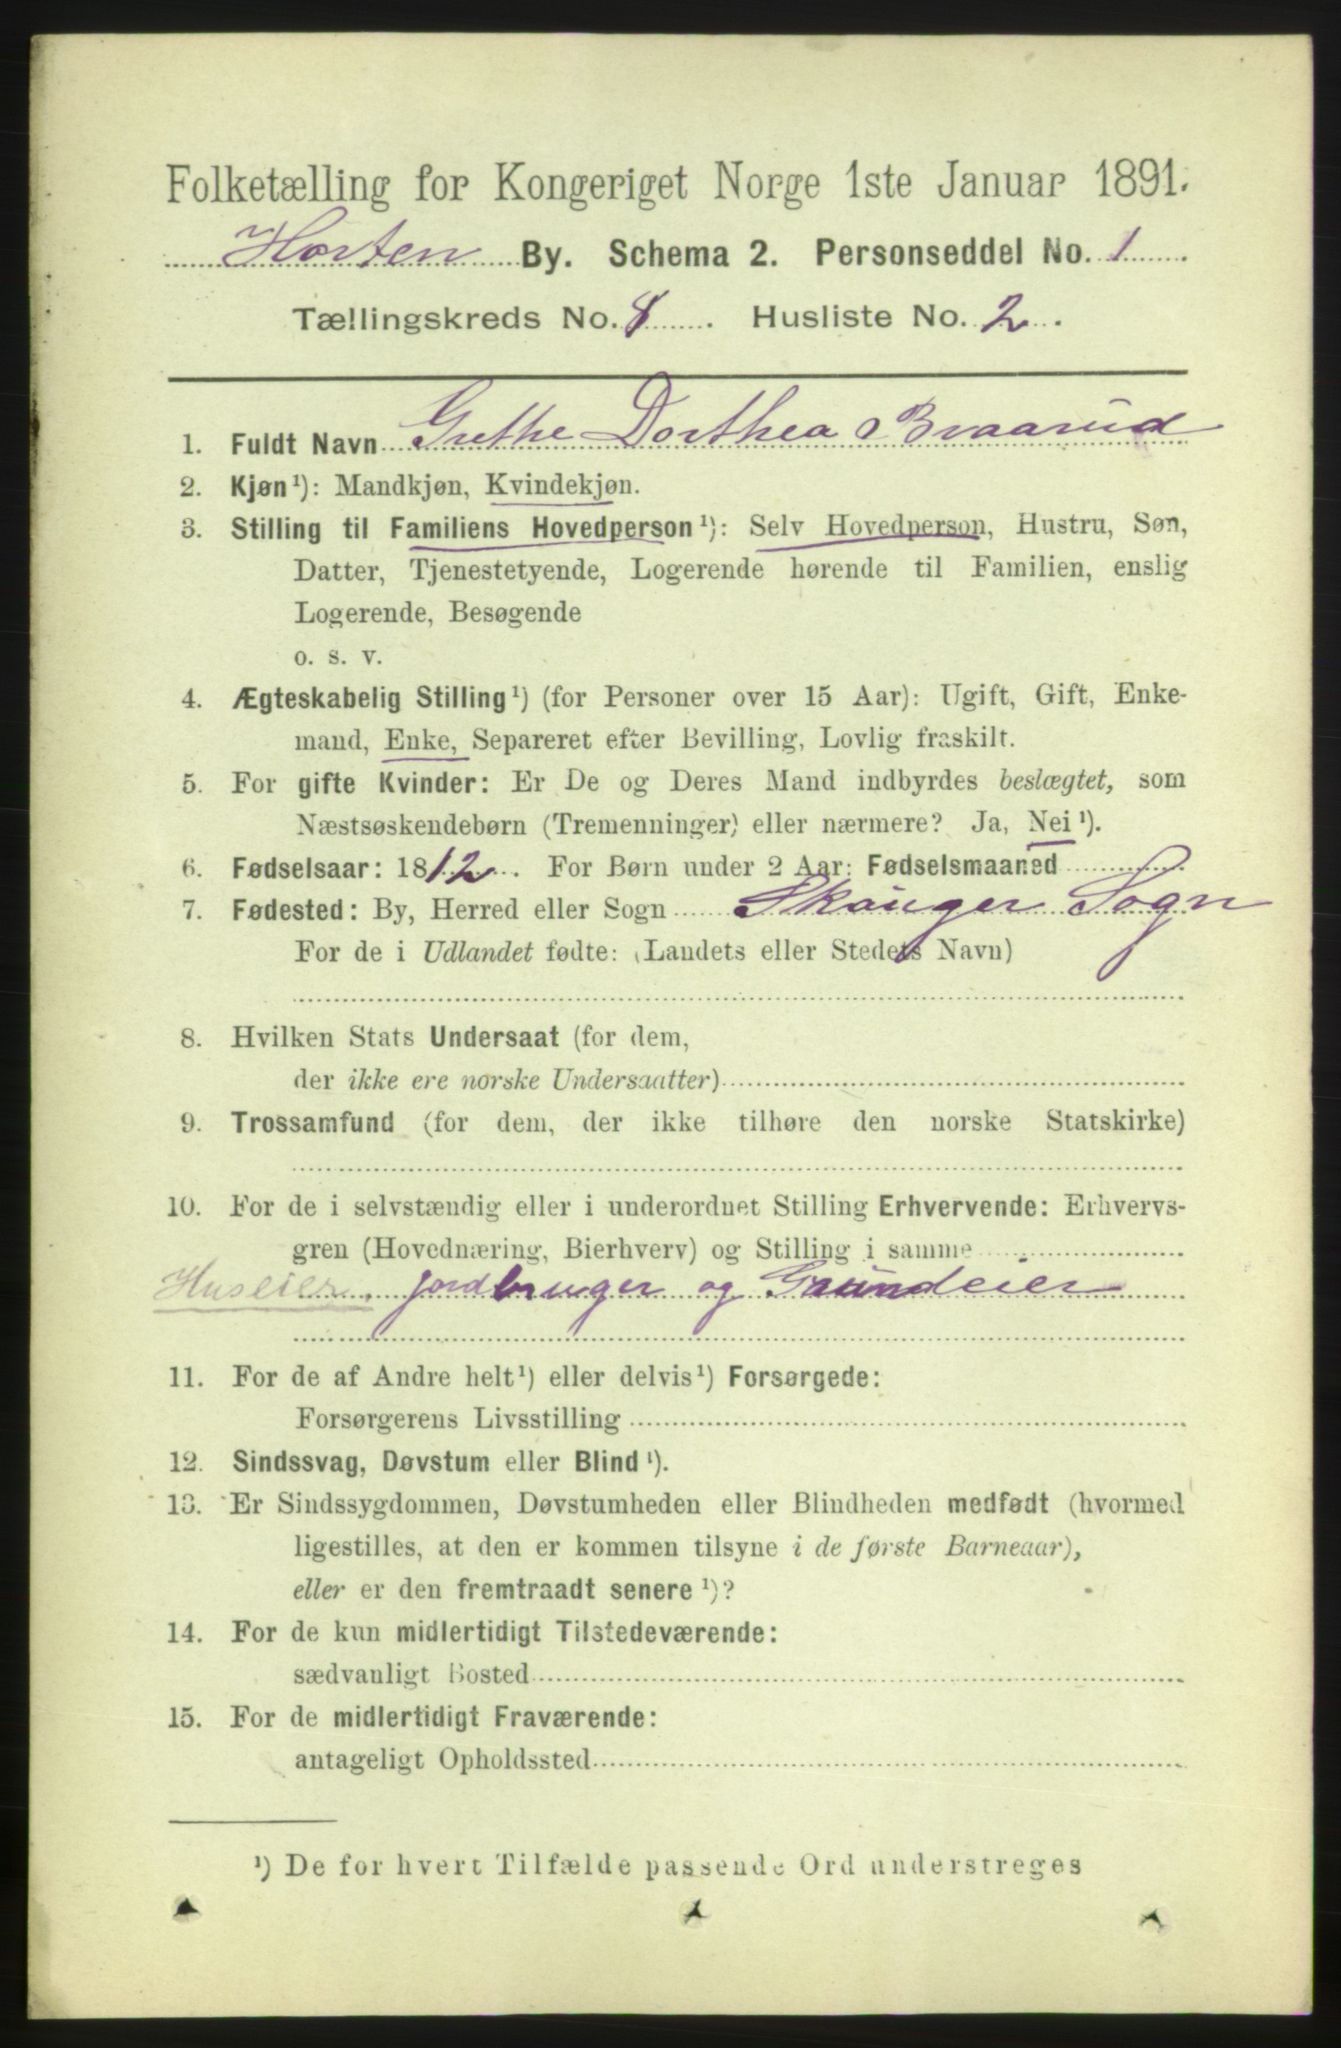 Folketælling for Kongeriget Norge 1ste Januar 1891.
Horten By. Schema 2. Personseddel No. 1
Tællingskreds No. 8. Husliste No. 2.
1. Fuldt Navn Grethe Dorthea Braarud
2. Kjøn ¹): Mandkjøn, Kvindekjøn.
3. Stilling til Familiens Hovedperson ¹): Selv Hovedperson, Hustru, Søn,
Datter, Tjenestetyende, Logerende hørende til Familien, enslig
Logerende, Besøgende
o. s. v.
4. Ægteskabelig Stilling ¹) (for Personer over 15 Aar): Ugift, Gift, Enke-
mand, Enke, Separeret efter Bevilling, Lovlig fraskilt.
5. For gifte Kvinder: Er De og Deres Mand indbyrdes beslægtet, som
Næstsøskendebørn (Tremenninger) eller nærmere? Ja, Nei ¹).
6. Fødselsaar: 1812. For Børn under 2 Aar: Fødselsmaaned
7. Fødested: By, Herred eller Sogn Skouger Sogn
For de i Udlandet fødte: (Landets eller Stedets Navn)
8. Hvilken Stats Undersaat (for dem,
der ikke ere norske Undersaatter)
9. Trossamfund (for dem, der ikke tilhøre den norske Statskirke)
10. For de i selvstændig eller i underordnet Stilling Erhvervende: Erhvervs-
gren (Hovednæring, Bierhverv) og Stilling i samme
Huseier. jordbruger og Grundeier
11. For de af Andre helt ¹) eller delvis ¹) Forsørgede:
Forsørgerens Livsstilling
12. Sindssvag, Døvstum eller Blind ¹).
13. Er Sindssygdommen, Døvstumheden eller Blindheden medfødt (hvormed
ligestilles, at den er kommen tilsyne i de første Barneaar),
eller er den fremtraadt senere ¹)?
14. For de kun midlertidigt Tilstedeværende:
sædvanligt Bosted
15. For de midlertidigt Fraværende:
antageligt Opholdssted
¹) De for hvert Tilfælde passende Ord understreges